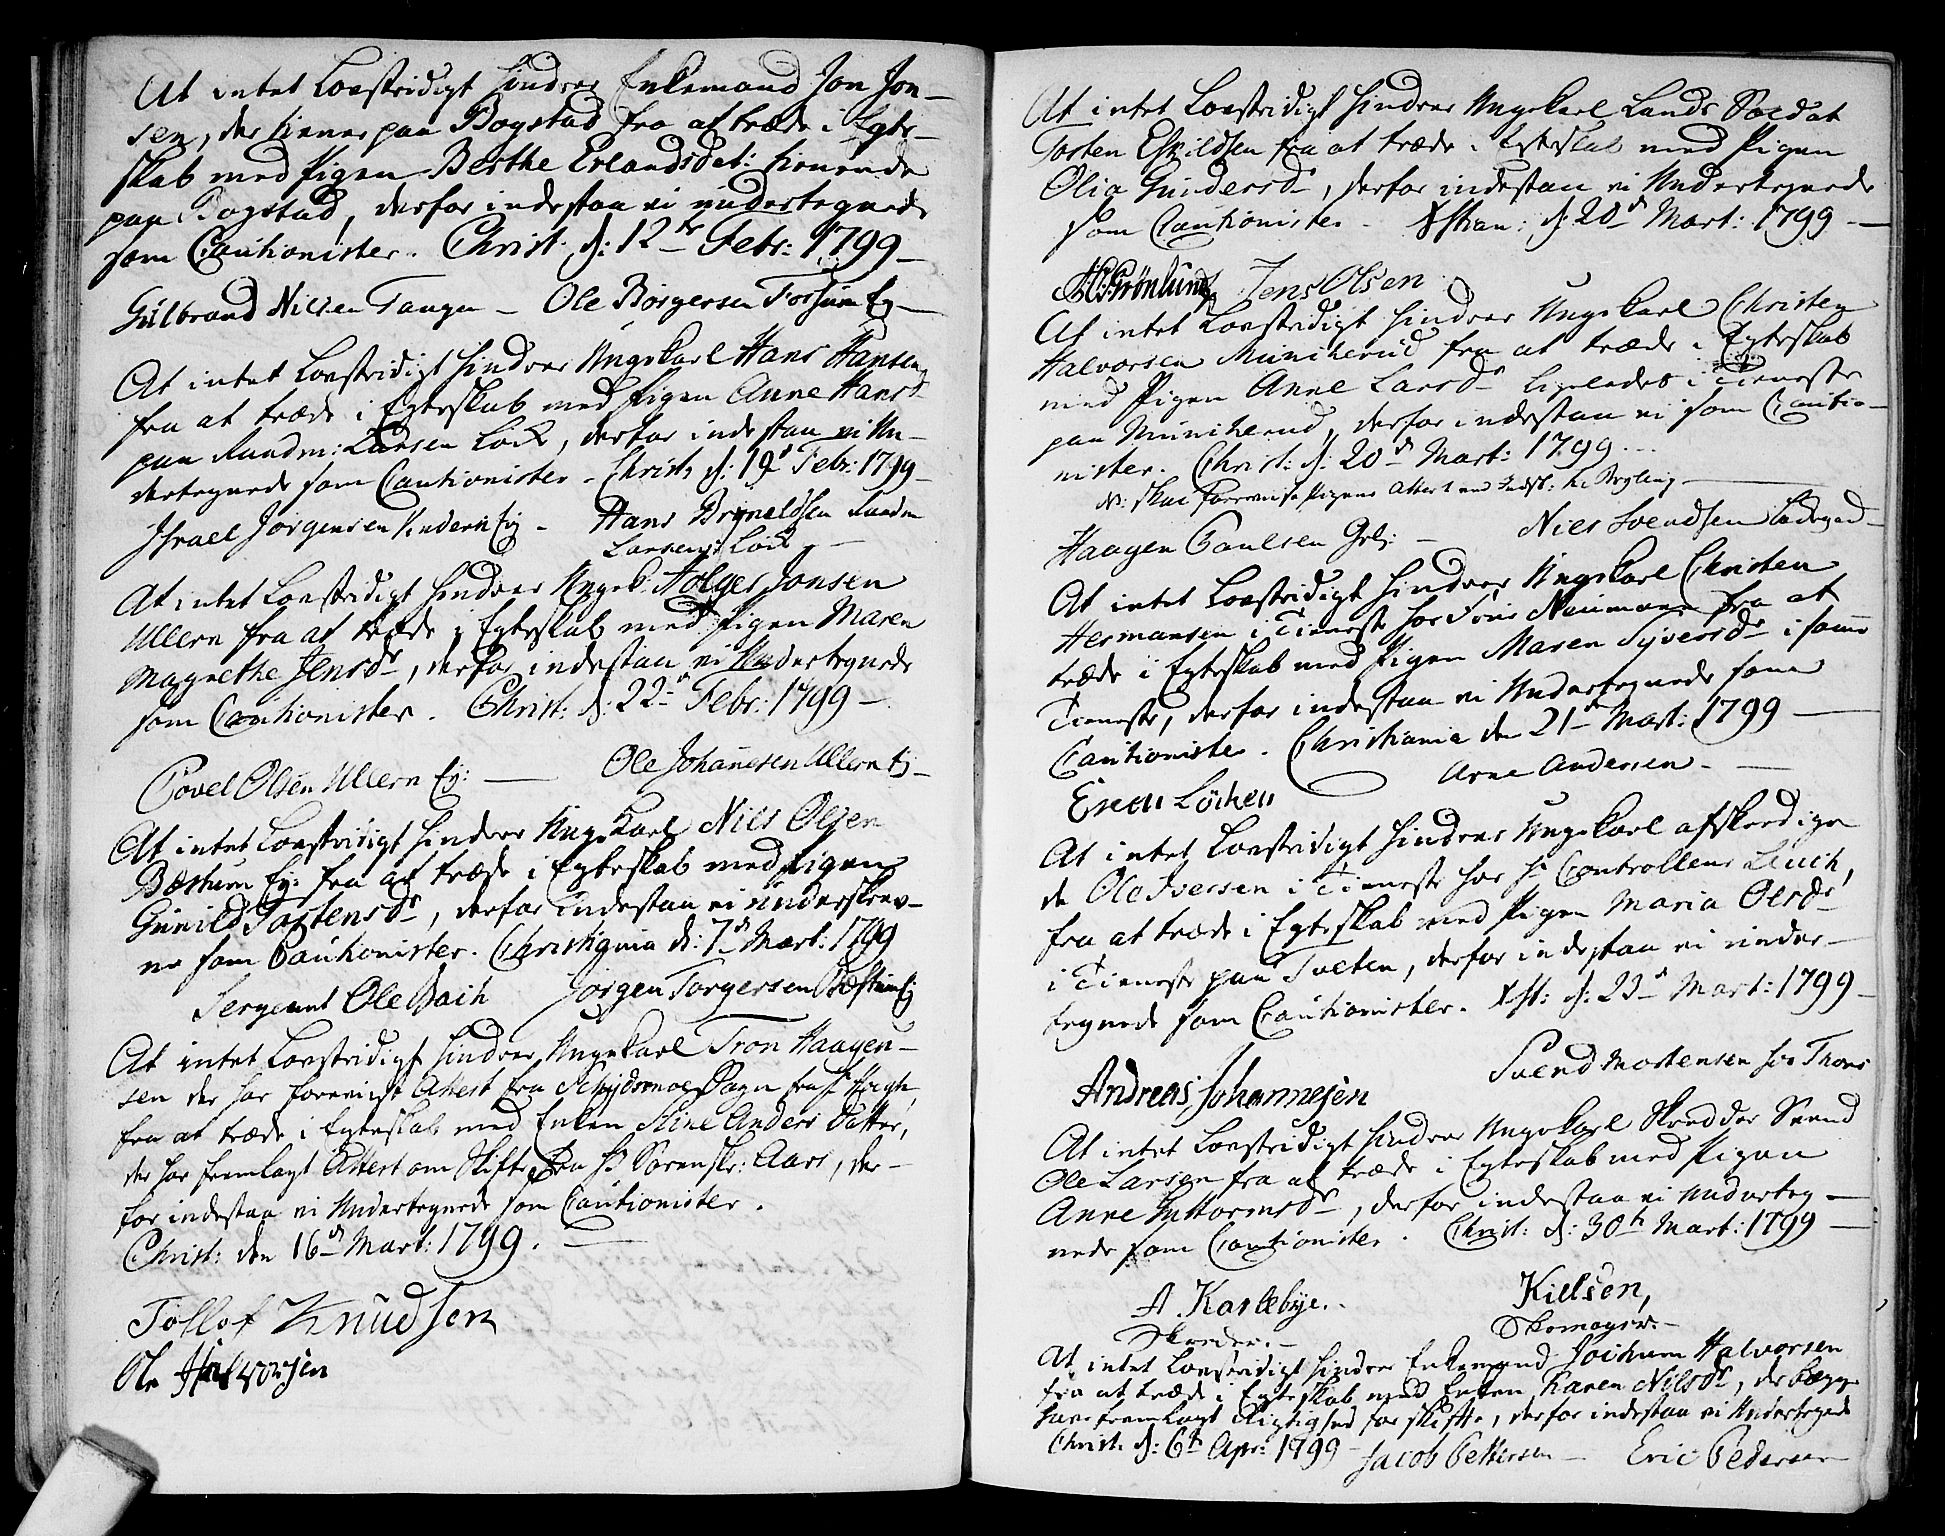 At intet Lovstridigt hindrer Enkemand Jon Jon-
sen, der tiener paa Bogstad fra at træde i Egte-
skab med Pigen Berthe Erlandsdat: tienende
paa Bogstad, derfor indestaa vi undertegnede
som Cautionister. Christ: d: 12te Febr: 1799 –
Gulbrand Nilsen Tangen – Ole Børgersen Fossum Ey –
At intet Lovstridigt hindrer Ungekarl Hans Hansen
fra at træde i Egteskab med Pigen Anne Hansd
paa Raadm: Larsen Løck, derfor indestaa vi Un-
dertegnede som Cautionister – Christ: d: 19d Febr: 1799 –
Israel Jørgensen Undern Ey – Hans Bryneldsen Raadm
Larsens Løck –
At intet Lovstridigt hindrer Ungek: Holger Jonsen
Ullern fra at træde i Egteskab med Pigen Maren
Magrethe Jensdr, derfor indestaa vi Undertegnede
som Cautionister. Christ: d: 22d Febr: 1799 –
Povel Olsen Ullern Ey: – Ole Johanesen Ullern Ey –
At intet Lovstridigt hindrer Ungekarl Nils Olsen
Bæstum Ey: fra at træde i Egteskab med Pigen
Gunild Tostensdr, derfor indestaa vi underskrev-
ne som Cautionister. Christiania d: 7d Mart: 1799
Sergeant Ole Bach Jørgen Torgersen Bæstum Ey
At intet Lovstridigt hindrer Ungekarl Tron Haagen-
sen der har foreviist Attest fra Schydsmoe Sogn fra Hr Høegh,
fra at træde i Egteskab med Enken Stine Anders Datter,
der har fremlagt Attest om Skifte fra Hr Sorenskr: Aars, der-
for indestaa vi Undertegnede som Cautionister.
Christ: den 16d Mart: 1799. –
Tollof Knudsen
Ole Halvorsen
At intet Lovstridigt hindrer Ungekarl Lands Soldat
Tosten Eskildsen fra at træde i Egteskab med Pigen
Olia Gundersdr, derfor indestaa vi Undertegnede
som Cautionister – Xstian: d: 20d Mart: 1799 –
Grønlund Jens Olsen
At intet Lovstridigt hindrer Ungekarl Christen
Halvorsen Munikerud fra at træde i Egteskab
med Pigen Anne Larsdr ligeledes i Tieneste
paa Munikerud, derfor indestaa vi som Cautio-
nister. Christ: d: 20d Mart: 1799 . . .
skal forevise Pigens Attest
Haagen Paulsen – Niels Svendsen Ladegad –
At intet Lovstridigt hindrer Ungekarl Christen
Hermansen i Tieneste hos Frue Naumann fra at
træde i Egteskab med Pigen Maren Syversdr i samme
Tieneste, derfor indestaa vi Undertegnede som
Cautionister. Christiania den 21d Mart: 1799 –
Even Löchen Arne Andersen –
At intet Lovstridigt hindrer Ungekarl afskeedige-
de Ole Iversen i Tieneste hos Hr Controlleur Leuch,
fra at træde i Egteskab med Pigen Maria Olsdr
i Tieneste paa Tveten, derfor indestaa vi under-
tegnede som Cautionister. Xst: d: 23d Mart: 1799 –
Andreas Johannesen Svend Mortensen hos Thorne
At intet Lovstridigt hindrer Ungekarl Skredder Svend
Ole Larsen fra at træde i Egteskab med Pigen
Anne Guttormsdr, derfor indestaa vi Underteg-
nede som Cautionister. Christ: d: 30te Mart: 1799 –
A. Karlebye. Kielsen,
Skreder. – Skomager. –
At intet Lovstridigt hindrer Enkemand Jochum Halvorsen
fra at træde i Egteskab med Enken Karen Nilsdr, de begge
have fremlagt Rigtighed for Skifte, derfor indestaa vi Undertegnede
Christ: d: 6te Apr: 1799 – Jacob Pettersen – Eric Pedersen